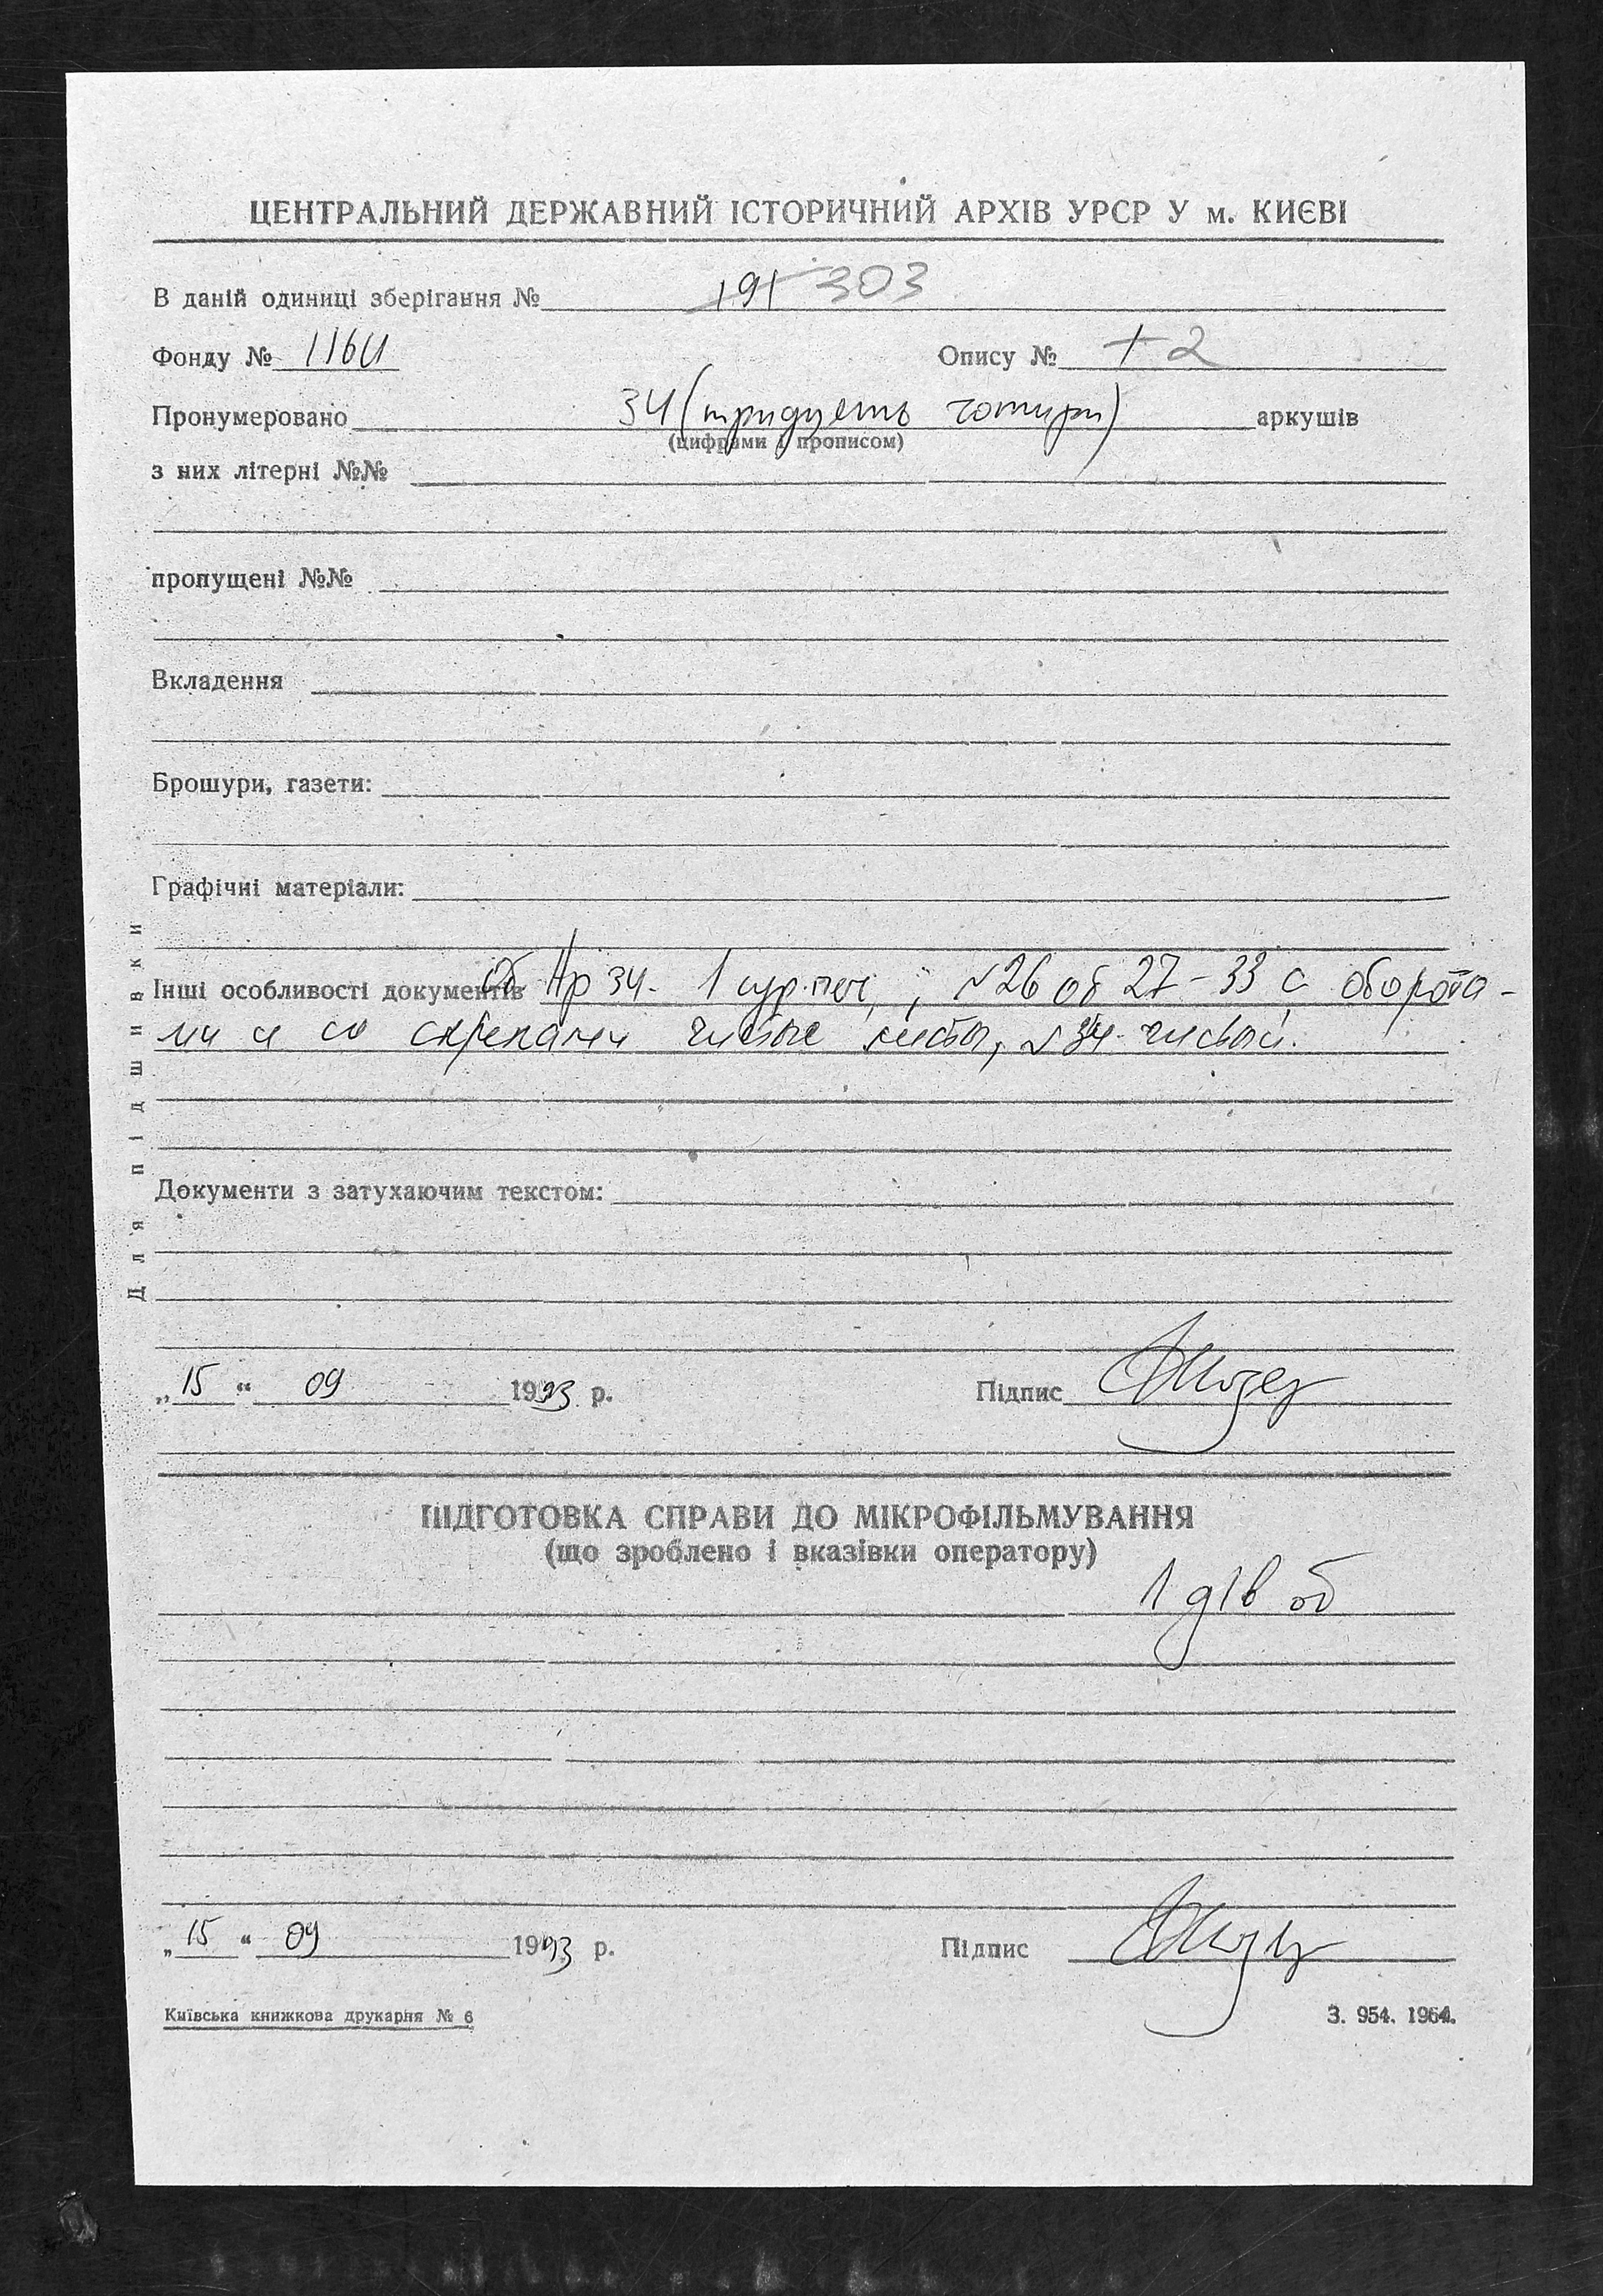 ЦЕНТРАЛЬНИЙ ДЕРЖАВНИЙ ІСТОРИЧНИЙ АРХІВ УРСР У м. КИЄВІ
В даній одиниці зберігання № 191 303
Фонду № 1164 Опису № 1 2
Пронумеровано 34 (тридцять чотири) аркушів
(цифрами і прописом)
з них літерні №№
пропущені №№
Вкладення
Брошури, газети:
Графічні матеріали:
Інші особливості документів Об Ар 34. 1 сур. печ, ; №26 об 27-33 с оборота-
ми и со скрепами чистые листы, №34 чистый.
Документи з затухаючим текстом:
Для підшивки
„ 15 “ 09 1993 р. Підпис
ПІДГОТОВКА СПРАВИ ДО МІКРОФІЛЬМУВАННЯ
(що зроблено і вказівки оператору)
1 дів об
„ 15 “ 09 1993 р. Підпис
Київська книжкова друкарня № 6 З. 954. 1964.